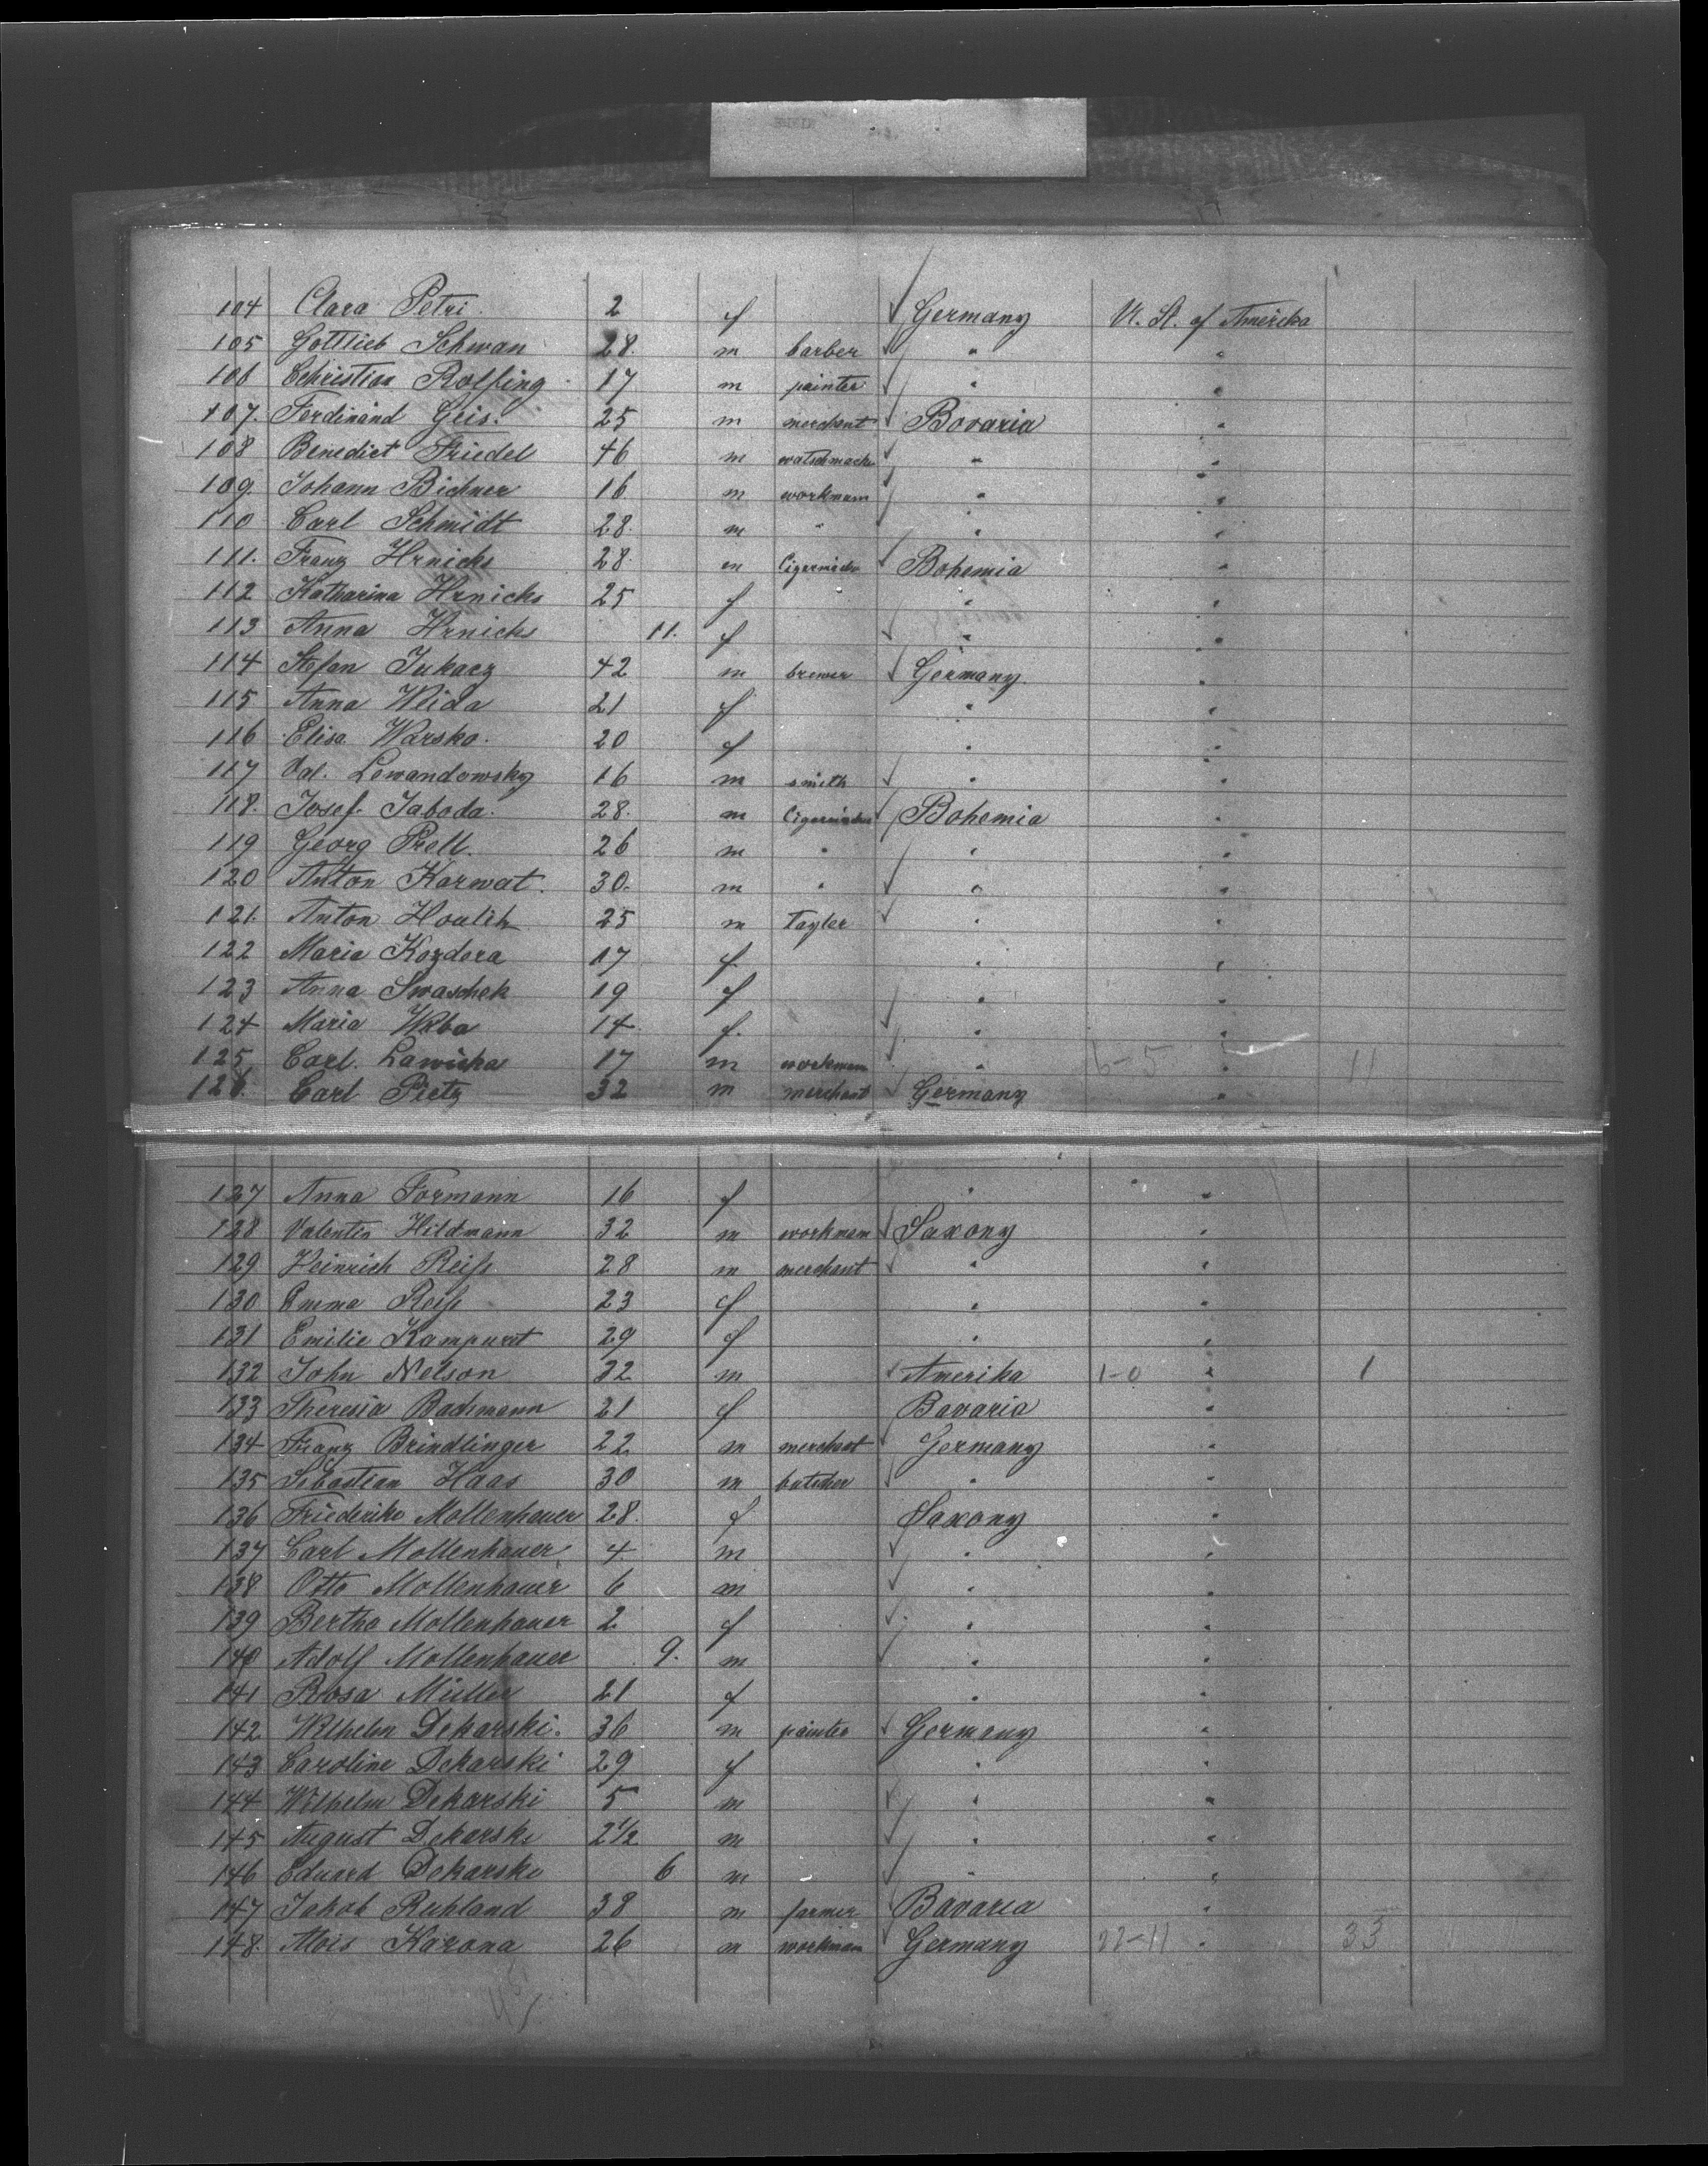 104 Clara Petri 2 f Germany U. St. of Amerika
105 Gottlieb Schwan 28. m barber " "
106 Christian Rolfing 17 m painter " "
107. Ferdinand Geis. 25 m merchant Bovaria "
108 Benedict Friedel 46 m watschmacher " "
109. Johann Bichner 16 m workmann " "
110 Carl Schmidt 28. m " " "
111. Franz Hrnicks 28. m Bohemia "
112 Katharina Hrnicks 25 f " "
113 Anna Hrnicks 11. f " "
114 Stefan Jukacz 42 m brewer Germany "
115 Anna Weida 21 f " "
116 Elisa Warsko. 20 f " "
117 Val. Lewandowsky 16 m smith " "
118. Josef Jaboda. 28. m Bohemia "
119 Georg Prell. 26 m " " "
120 Anton Karwat. 30. m " " "
121. Anton Houlik 25 m Tayler " "
122 Maria Kozdera 17 f " "
123 Anna Swaschek 19 f " "
124 Maria Wrba 14 f. " "
125 Carl Lawicka 17 m workmann " 6-5 " 11
126. Carl Pietz 32 m merchant Germany "
127 Anna Formann 16 f " "
128 Valentin Hildmann 32 m workmann Saxony "
129 Heinrich Reiß 28 m merchant " "
130 Emma Reiß 23 f " "
131 Emilie 29 f " "
132 John Nelson 32 m Amerika 1-0 " 1
133 Theresia Bachmann 21 f Bavaria "
134 Franz Brindlinger 22 m merchant Germany "
135 Sebastian Haas 30 m butcher " "
136 Friederike Mollenhauer 28. f Saxony "
137 Carl Mollenhauer 4 m " "
138 Otto Mollenhauer 6 m " "
139 Bertha Mollenhauer 2 f " "
140 Adolf Mollenhauer 9. m " "
141 Rosa Müller 21 f " "
142 Wilhelm Dekarski. 36 m painter Germany "
143 Caroline Dekarski 29 f " "
144 Wilhelm Dekarski 5 m " "
145 August Dekarski 2 1/2 m " "
146 Eduard Dekarski 6 m " "
147 Jakob Ruhland 38 m farmer Bavaria "
148. Alois Karona 26 m workman Germany 22-11 " 33